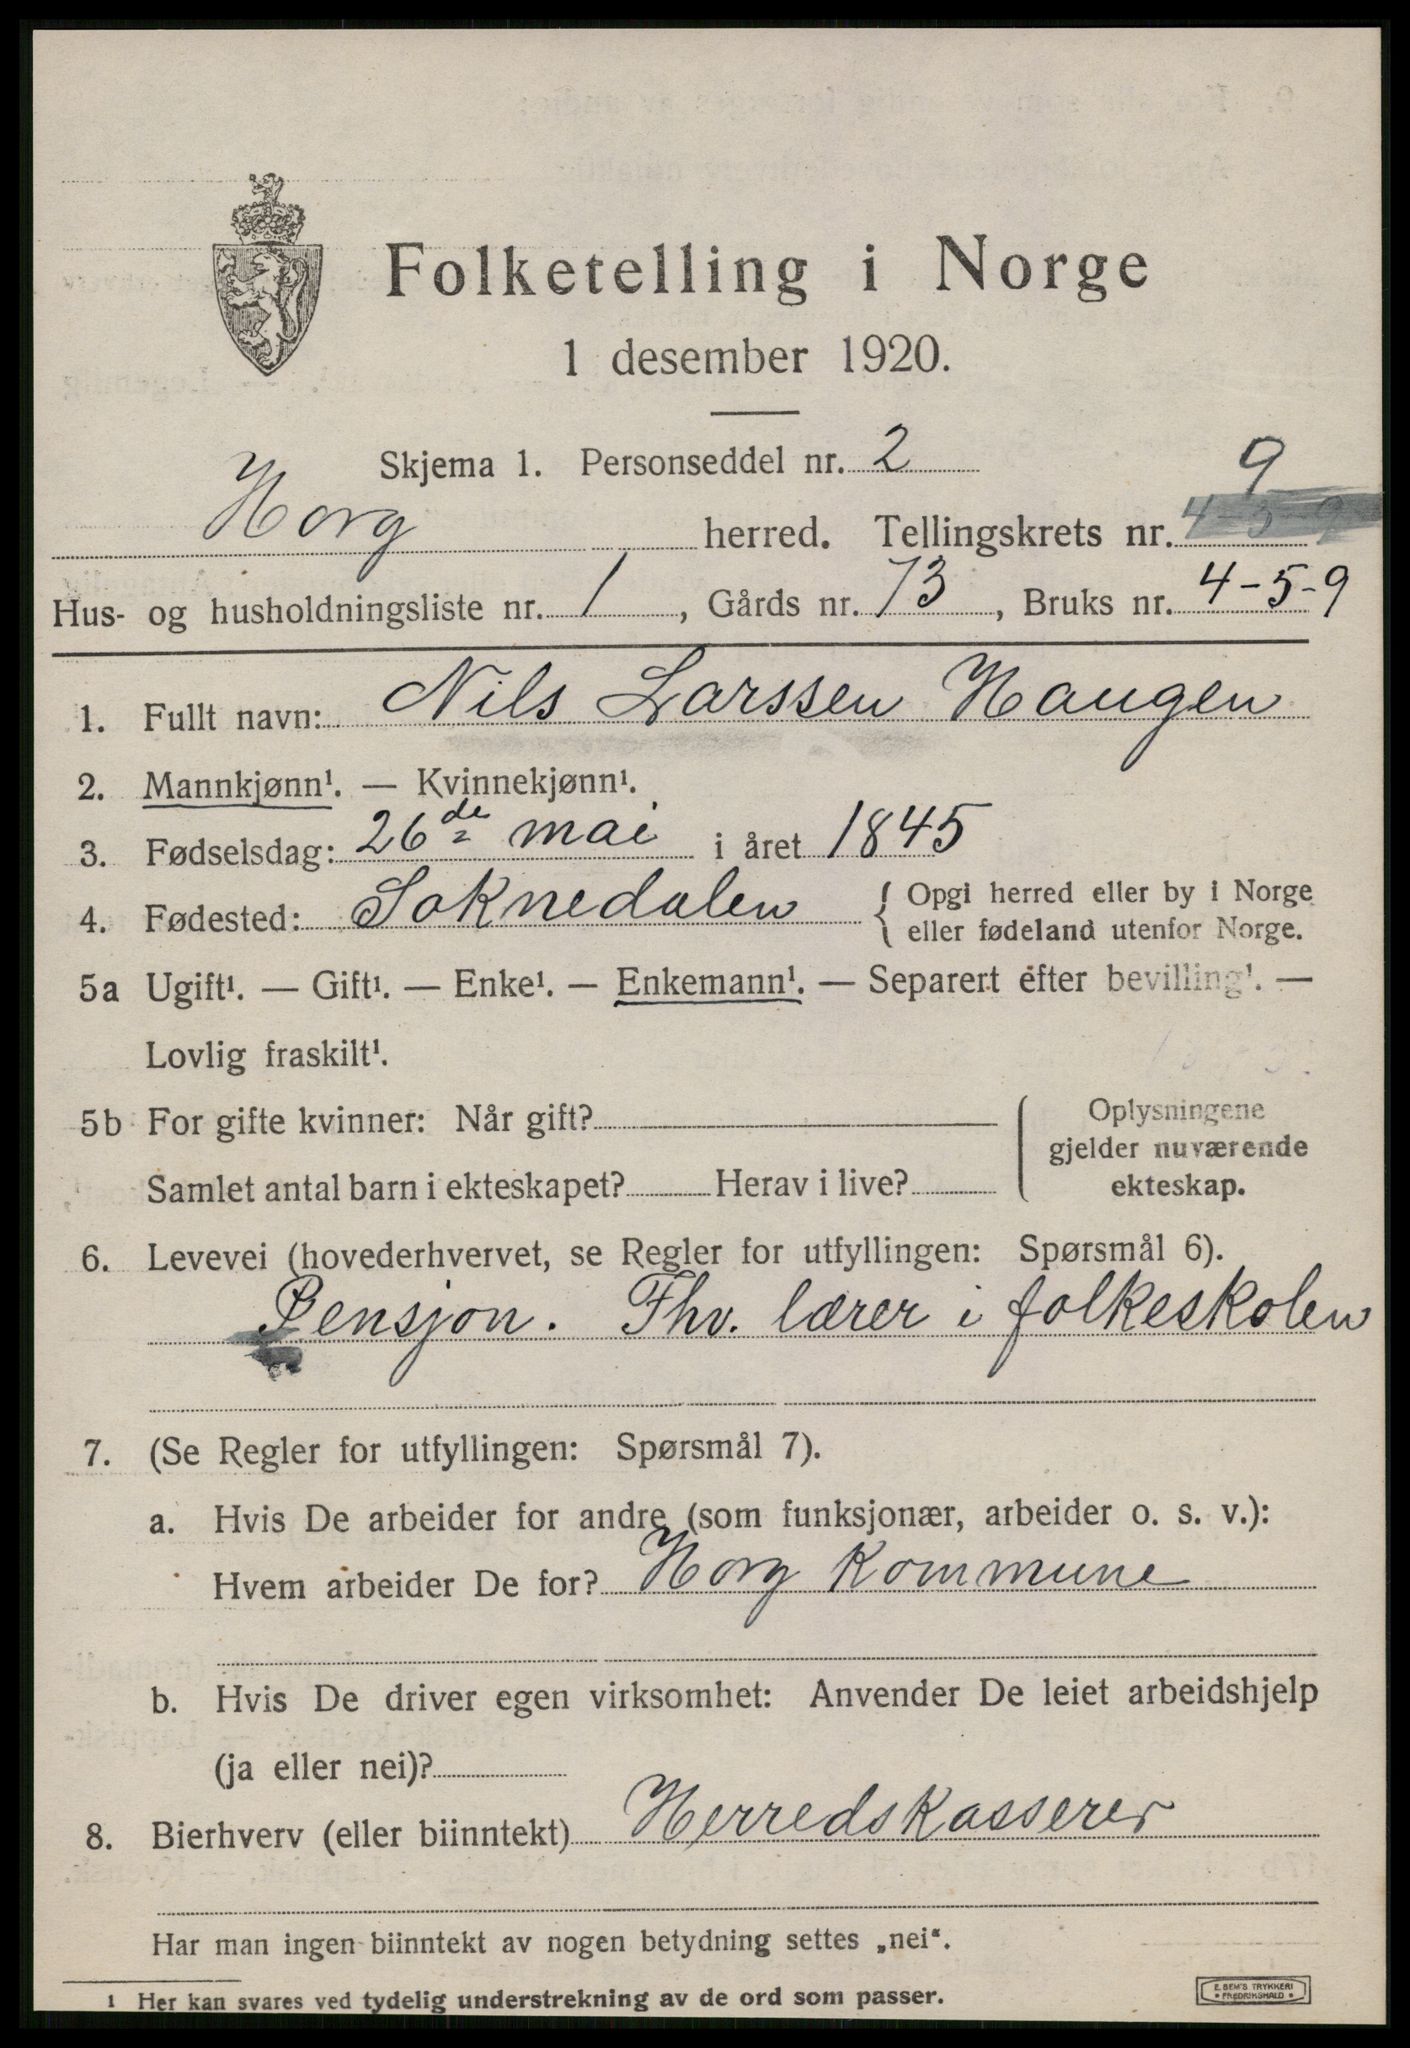 Folketelling i Norge
1 desember 1920.
Skjema 1. Personseddel nr. 2
9
Horg herred. Tellingskrets nr. 4-5-9
Hus- og husholdningsliste nr. 1, Gårds nr. 73, Bruks nr. 4-5-9
1. Fullt navn: Nils Larssen Haugen
2. Mannkjønn¹. — Kvinnekjønn¹.
3. Fødselsdag: 26de mai i året 1845
4. Fødested: Soknedalen { Opgi herred eller by i Norge
eller fødeland utenfor Norge.
5a Ugift¹. — Gift¹. — Enke¹. — Enkemann¹. — Separert efter bevilling¹. —
Lovlig fraskilt¹.
5b For gifte kvinner: Når gift?
Samlet antal barn i ekteskapet? Herav i live?
Oplysningene
gjelder nuværende
ekteskap.
6. Levevei (hovederhvervet, se Regler for utfyllingen: Spørsmål 6).
Pensjon. Fhv. lærer i folkeskolen
7. (Se Regler for utfyllingen: Spørsmål 7).
a. Hvis De arbeider for andre (som funksjonær, arbeider o. s. v.):
Hvem arbeider De for? Horg Kommune
b. Hvis De driver egen virksomhet: Anvender De leiet arbeidshjelp
(ja eller nei)?
8. Bierhverv (eller biinntekt) Herredskasserer
Har man ingen biinntekt av nogen betydning settes „nei“.
1 Her kan svares ved tydelig understrekning av de ord som passer.
E. SEM'S TRYKKERI
FREDRIKSHALD